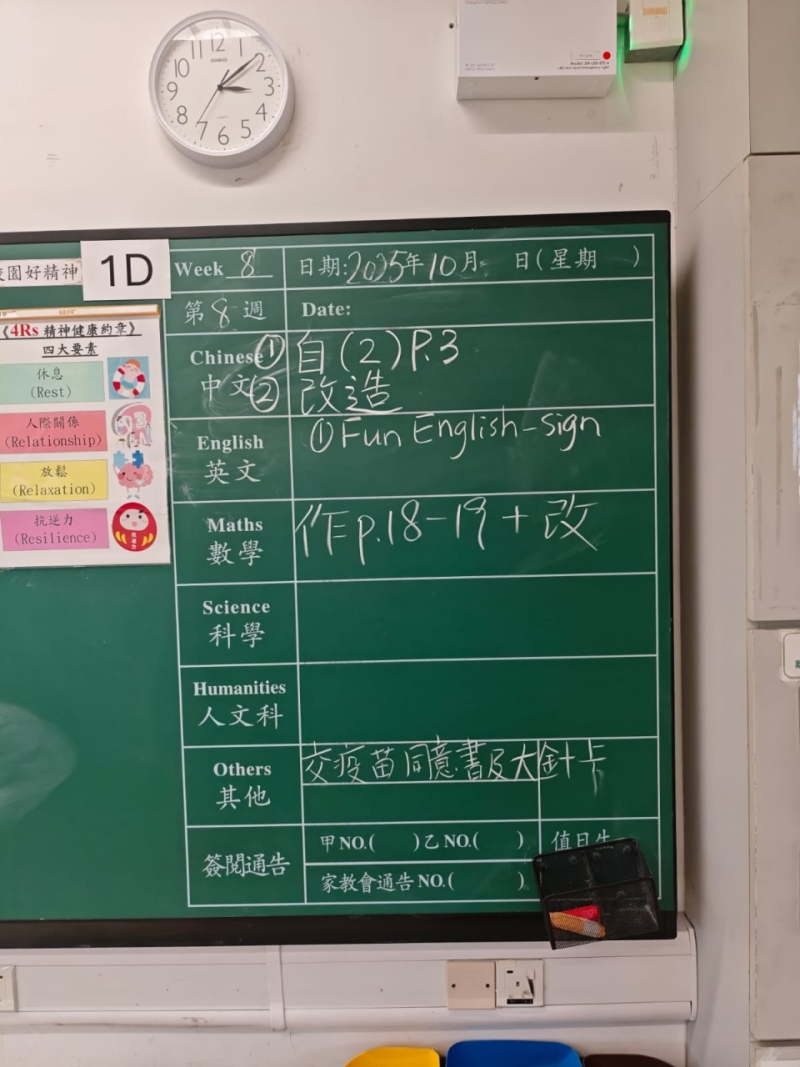 12 1 2 3 4 5 6 7 8 9 10 11
CASIO
校園好精神
1D
Week 8
日期:2025年10月 日(星期 )
第8週
Date:
《4Rs 精神健康約章》
四大要素
休息
(Rest)
人際關係
(Relationship)
放鬆
(Relaxation)
抗逆力
(Resilience)
Chinese
中文
① 自(2)P.3
② 改造
English
英文
① Fun English-sign
Maths
數學
作p.18-19+改
Science
科學
Humanities
人文科
Others
其他
交疫苗同意書及大針卡
簽閱通告
甲NO.( )乙NO.( )
值日生
家教會通告NO.( )